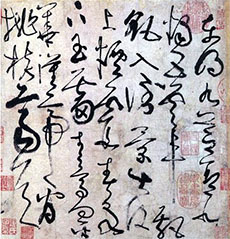 東明九芝蓋北
燭五雲車飄
飖入倒景出沒
上煙霞春泉
下玉霤青鳥向金
華漢帝看
桃核齊侯問棘